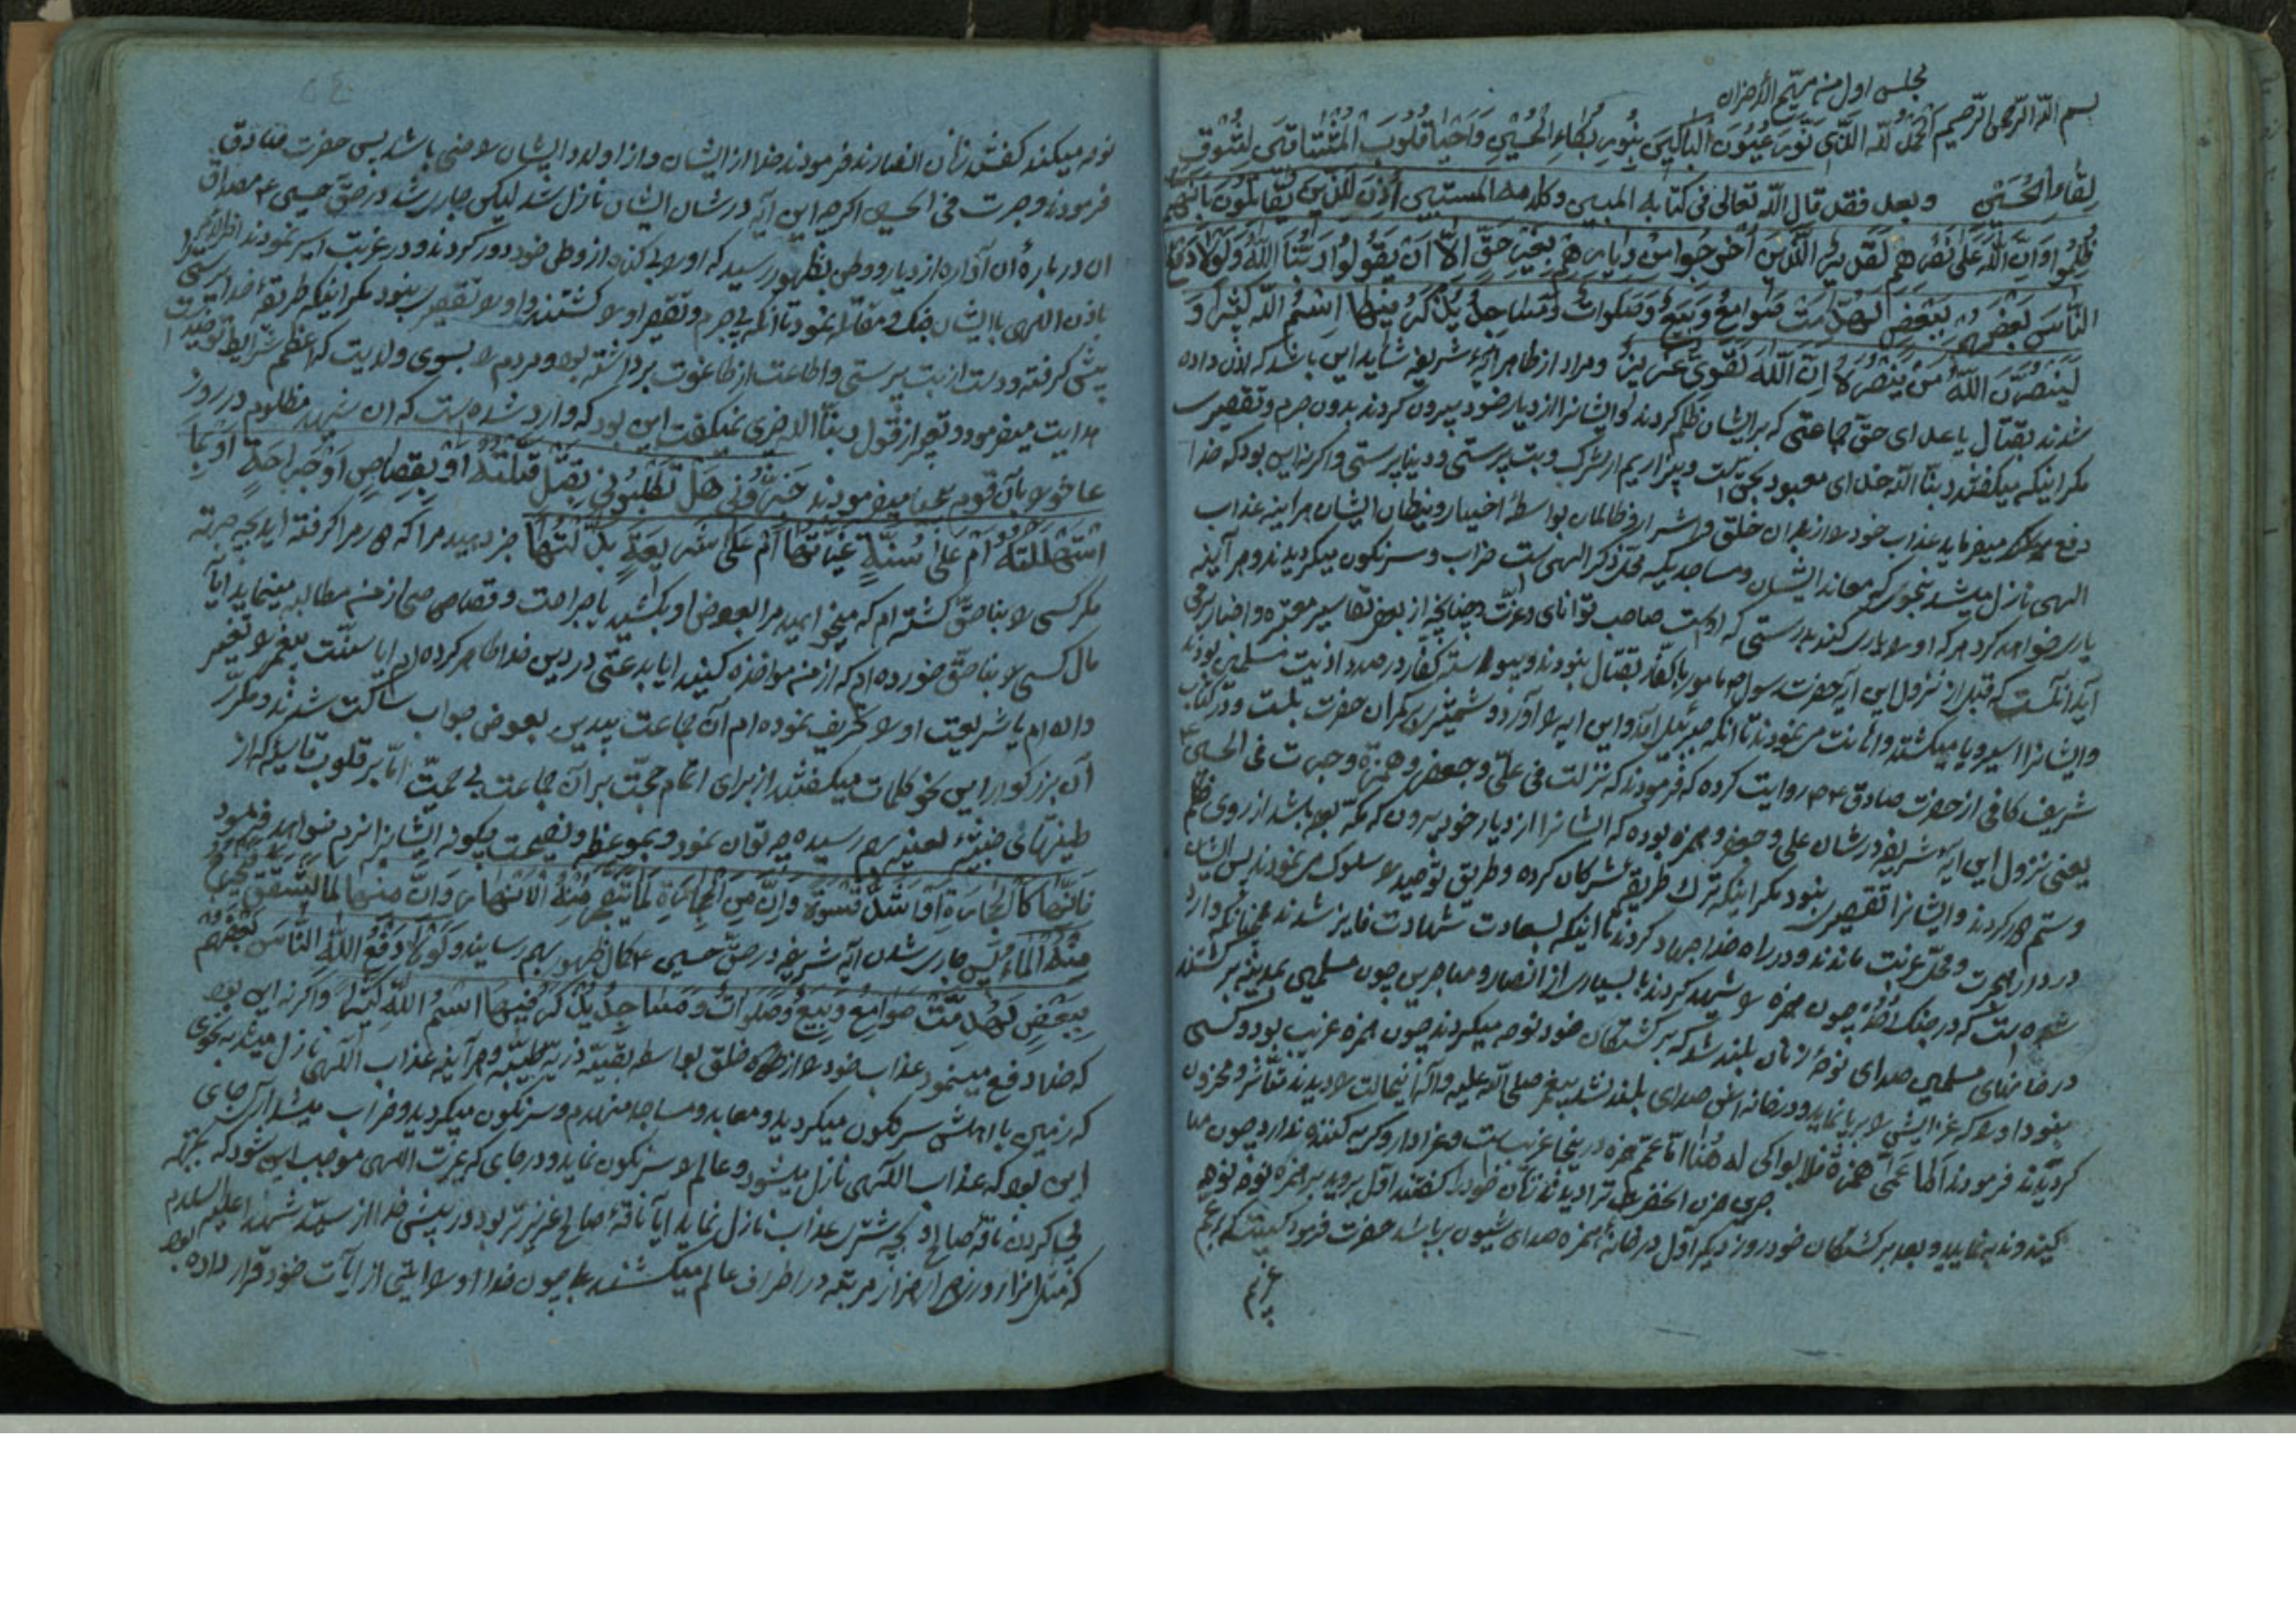 مجلس اول من مهیج الاحزان
بسم الله الرحمن الرحیم الحمد لله الذی نَوَّرَ عُیُونَ الباکینَ بِنُورِ بُکاءِ الحُسَینِ وَاَحیا قُلُوبَ المُشتاقینَ لِتَشَوُّقِ
لِقاءِ الحُسَینِ وبعد فقد قال الله تعالی فی کتابه المبین وکلامه المستبین اُذِنَ لِلَّذینَ یُقاتَلُونَ بِاَنَّهُم
ظُلِمُوا وَاِنَّ اللّهَ عَلی نَصرِهِم لَقَدیرٌ الَّذینَ اُخرِجُوا مِن دِیارِهِم بِغَیرِ حَقٍّ اِلّا اَن یَقُولُوا رَبُّنَا اللّهُ وَلَولا دَفعُ
النّاسَ بَعضَهُم بِبَعضٍ لَهُدِّمَت صَوامِعُ وَبِیَعٌ وَصَلَواتٌ وَمَساجِدُ یُذکَرُ فیهَا اسمُ اللّهِ کَثیراً وَ
لَیَنصُرَنَّ اللّهُ مَن یَنصُرُهُ اِنَّ اللّهَ لَقَوِیٌّ عَزیزٌ ومراد از ظاهر آیهٔ شریفه شاید این باشد که اذن داده
شدند بقتال با اعدای حق جماعتی که بر ایشان ظلم کردند وایشانرا از دیار خود بیرون کردند بدون جرم وتقصیری
مکر اینکه میکفتند ربنا الله خدای معبود بحق یکیست وبیزاریم از شرک وبت پرستی ودنیا پرستی واکر نه این بود که خدا
دفع میفرماید عذاب خود را از بدان خلق واشرار وظالمان بواسطهٔ اخیار ونیکان ایشان هر اینه عذاب
الهی نازل میشد بنحوی که معابد ایشان ومساجدیکه محل ذکر الهی ست خراب وسرنکون میکردیدند وهر آینه
یاری خواهد کرد هر که او را یاری کند بدرستی که اوست صاحب توانای وعزت وچنانچه از بعض تفاسیر معتبره واخبار
آید آنست که قبل از نزول این آیه حضرت رسول ص مامور با کفار بقتال نبودند وپیوسته کفار در صدد اذیت مسلمین بودند
وایشانرا اسیر ویا میکشتند واهانت می نمودند تا آنکه جبرئیل آمد واین آیه را آورد وشمشیر بر کمر آن حضرت بست ودر کتاب
شریف کافی از حضرت صادق ع روایت کرده که فرمودند که نزلت فی علی وجعفر وحمزة وجرت فی الحسین ع
یعنی نزول این آیهٔ شریفه در شان علی وجعفر وحمزه بوده که ایشانرا از دیار خود بیرون که مکه بوده باشد از روی ظلم
وستم کردند وایشانرا تقصیری نبود مکر اینکه ترک طریقهٔ مشرکان کرده وطریق توحید را سلوک می نمودند پس ایشان
در دار هجرت ومحل غربت ماندند ودر راه خدا جهاد کردند تا اینکه بسعادت شهادت فایز شدند همچنانکه وارد
شده است که در جنک اُحُد چون حمزه را شهید کردند با بسیاری از انصار ومهاجرین چون مسلمین بمدینه بر کشتند
در خانهای مسلمین صدای نوحهٔ زنان بلند شد که بر کشتکان خود نوحه میکردند چون حمزه غریب بود وکسی
نبود او را که عزایش را بر پا نماید ودر خانه اش صدای بلند نشد پیغمبر صلی الله علیه وآله اینحالت را دیدند متأثر ومحزون
کردیدند فرمودند امّا عَمّی حَمزةُ فلا بواکی له هُنا امّا عمّم حمزه درینجا غریب ست وعزادار وکریه کننده ندارد چون
حزن انحضرت را دیدند زنان خود را کفتند اول بروید بر حمزه نوحه
کنید وندبه نمایید وبعد بر کشتکان خود روز دیکر اول در خانهٔ حمزه صدای شیون بر پا شد حضرت فرمود کیست که بر عم
عزیزم
نوحه میکند کفتند زنان انصارند فرمودند خدا از ایشان واز اولاد ایشان راضی باشد پس حضرت صادق
فرمودند وجرت فی الحسین اکرچه این آیه در شان ایشان نازل شد لیکن جاری شد در حق حسین ع مصداق
ان در بارهٔ ان آواره از دیار ووطن بظهور رسید که او را بی کناه از وطن خود دور کردند ودر غربت اسیر نمودند
باذن الهی با ایشان جنک ومقاتله نمود تا آنکه بی جرم وتقصیر او را کشتند واو را تقصیری نبود مکر اینکه طریقهٔ خدا پرستی
پیش کرفته ودست از بت پرستی واطاعت از طاغوت برداشته بود ومردم را بسوی ولایت که اعظم شرایط توحید است
هدایت میفرمود وبغیر از قول ربنا الله چیزی نمیکفت این بود که وارد شده ست که ان شهید مظلوم در روز
عاشورا بآن قوم میفرمودند خَبِّرُونی هَل تَطلُبُونی بِقَتیلٍ قَتَلتُهُ اَو بِقِصاصٍ اَو جَراحَةٍ اَو بِمالٍ
استَهلَکتُهُ اَم عَلی سُنَّةٍ غَیَّرتُها اَم عَلی شَریعَةٍ بَدَّلتُها خبر دهید مرا که سر مرا کرفته اید بچه جرم
مکر کسی را بناحق کشته ام که میخواهید مرا بعوض او بکشید یا جراحت وقصاصی از من مطالبه مینماید ایا
مال کسی را بناحق خورده ام که از من مواخذه کنید ایا بدعتی در دین خدا ظاهر کرده ام ایا سنت پیغمبر را تغییر
داده ام یا شریعت او را تحریف نموده ام آن جماعت بیدین بعوض جواب ساکت شدند ومکرر
آن بزرکوار این نحو کلمات میکفتند از برای اتمام حجت بر آن جماعت بی حمیت امّا بر قلوب قاسیه که از
طینتهای خبیثهٔ لعینه بهم رسیده چه توان نمود وبموعظه ونصیحت چکونه ایشانرا نرم خواهد نمود
فَاِنَّها کَالحِجارَةِ اَو اَشَدُّ قَسوَةً وَاِنَّ مِنَ الحِجارَةِ لَما یَتَفَجَّرُ مِنهُ الاَنهارُ وَاِنَّ مِنها لَما یَشَّقَّقُ فَیَخرُجُ
مِنهُ الماءُ پس جاری شدن آیه شریفه در حق حسین ع کمال ظهور بهم رسانید وَلَولا دَفعُ اللّهِ النّاسَ بَعضَهُم
بِبَعضٍ لَهُدِّمَت صَوامِعُ وَبِیَعٌ وَصَلَواتٌ وَمَساجِدُ یُذکَرُ فیهَا اسمُ اللّهِ کَثیراً واکر نه این بود
که خدا دفع مینمود عذاب خود را از خلق بواسطه بقیهٔ ذریهٔ طیبه هر آینه عذاب الهی نازل میشد بنحوی
که زمین با اهلش سرنکون میکردید ومعابد ومساجد منهدم وسرنکون میکردید وخراب میشد
این بود که عذاب الهی نازل میشود وعالم را سرنکون نماید ودر جای که غیرت الهی موجب این شود که بجهة
پی کردن ناقهٔ صالح وبچه شترش عذاب نازل نماید آیا ناقهٔ صالح عزیزتر بود در پیش خدا از سید شهدا علیه السلام
که مثل هزار هزار مرتبه در اطراف عالم میکشتند بلی چون خدا او را آیتی از آیات خود قرار داده بود